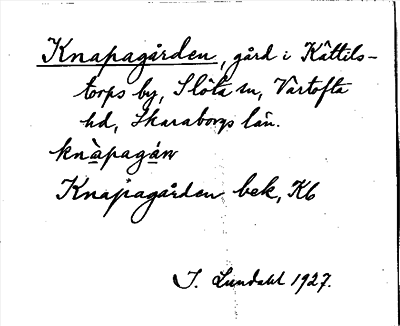 Knapagården, gård i Kättils-
torps by, Slöta sn, Vartofta
hd, Skaraborgs län.
knàpagán
Knapagården bek, Kb
J. Lundahl 1927.